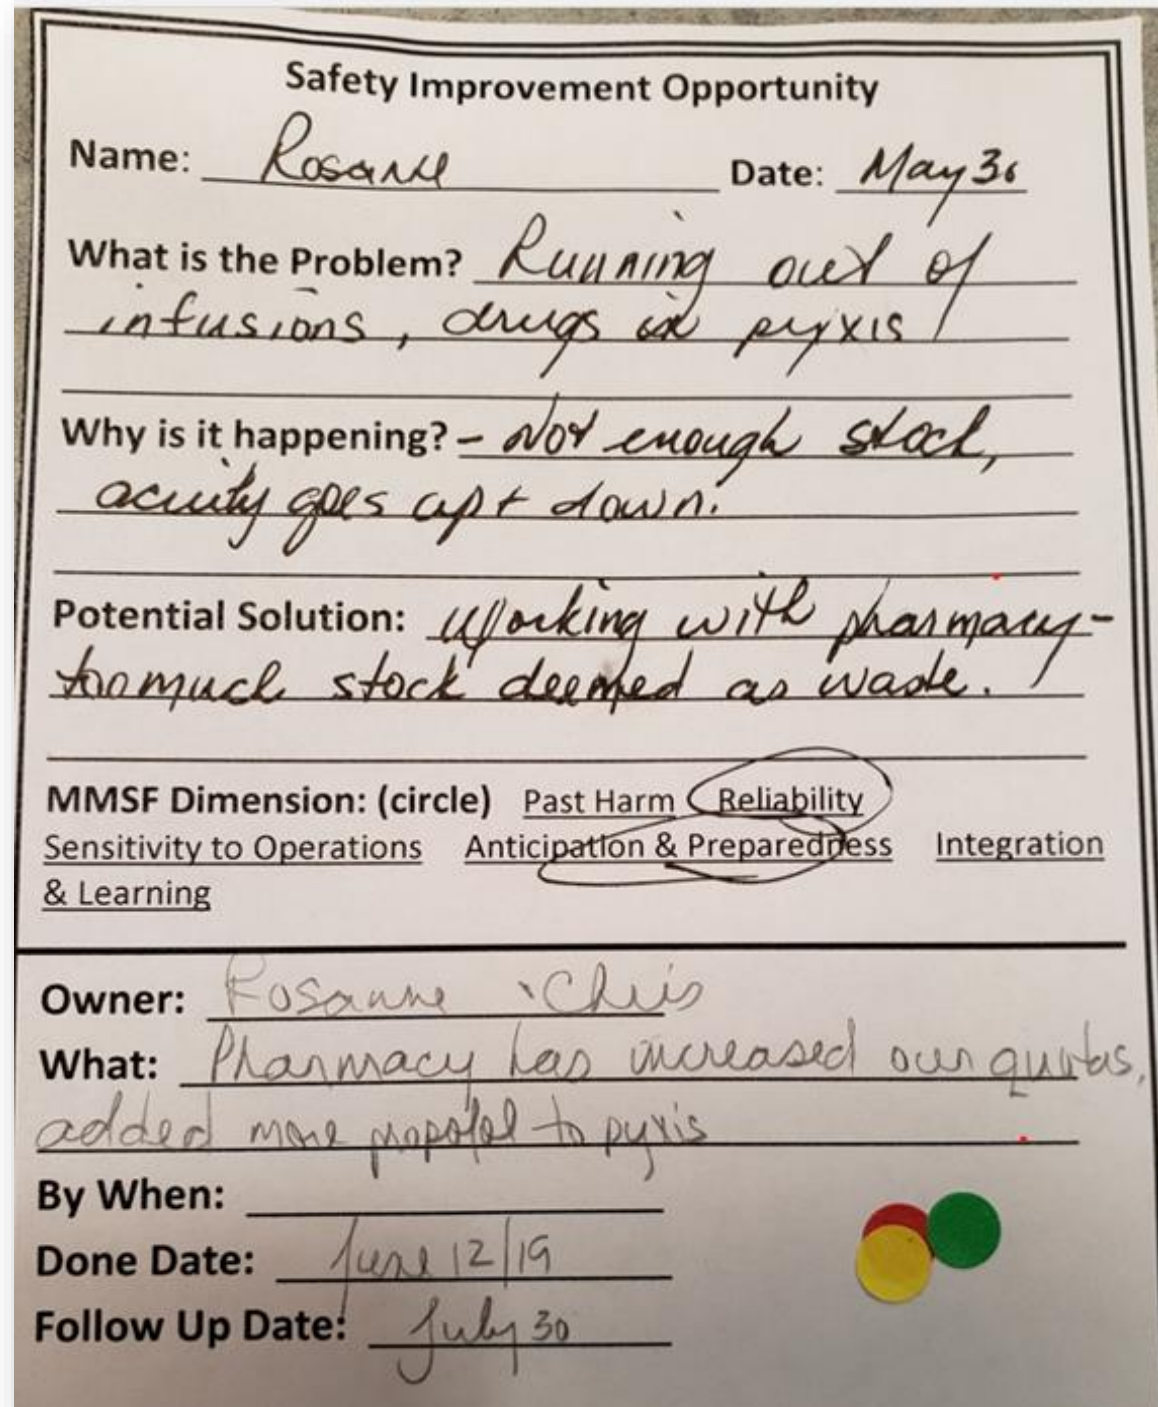 Safety Improvement Opportunity
Name: Rosanne Date: May 30
What is the Problem? Running out of
infusions, drugs in pyxis
Why is it happening? - Not enough stock,
acuity goes up + down.
Potential Solution: Working with pharmacy -
too much stock deemed as waste.
MMSF Dimension: (circle) Past Harm Reliability
Sensitivity to Operations Anticipation & Preparedness Integration
& Learning
Owner: Rosanne Chris
What: Pharmacy has increased our quotas,
added more propofol to pyxis
By When:
Done Date: June 12/19
Follow Up Date: July 30